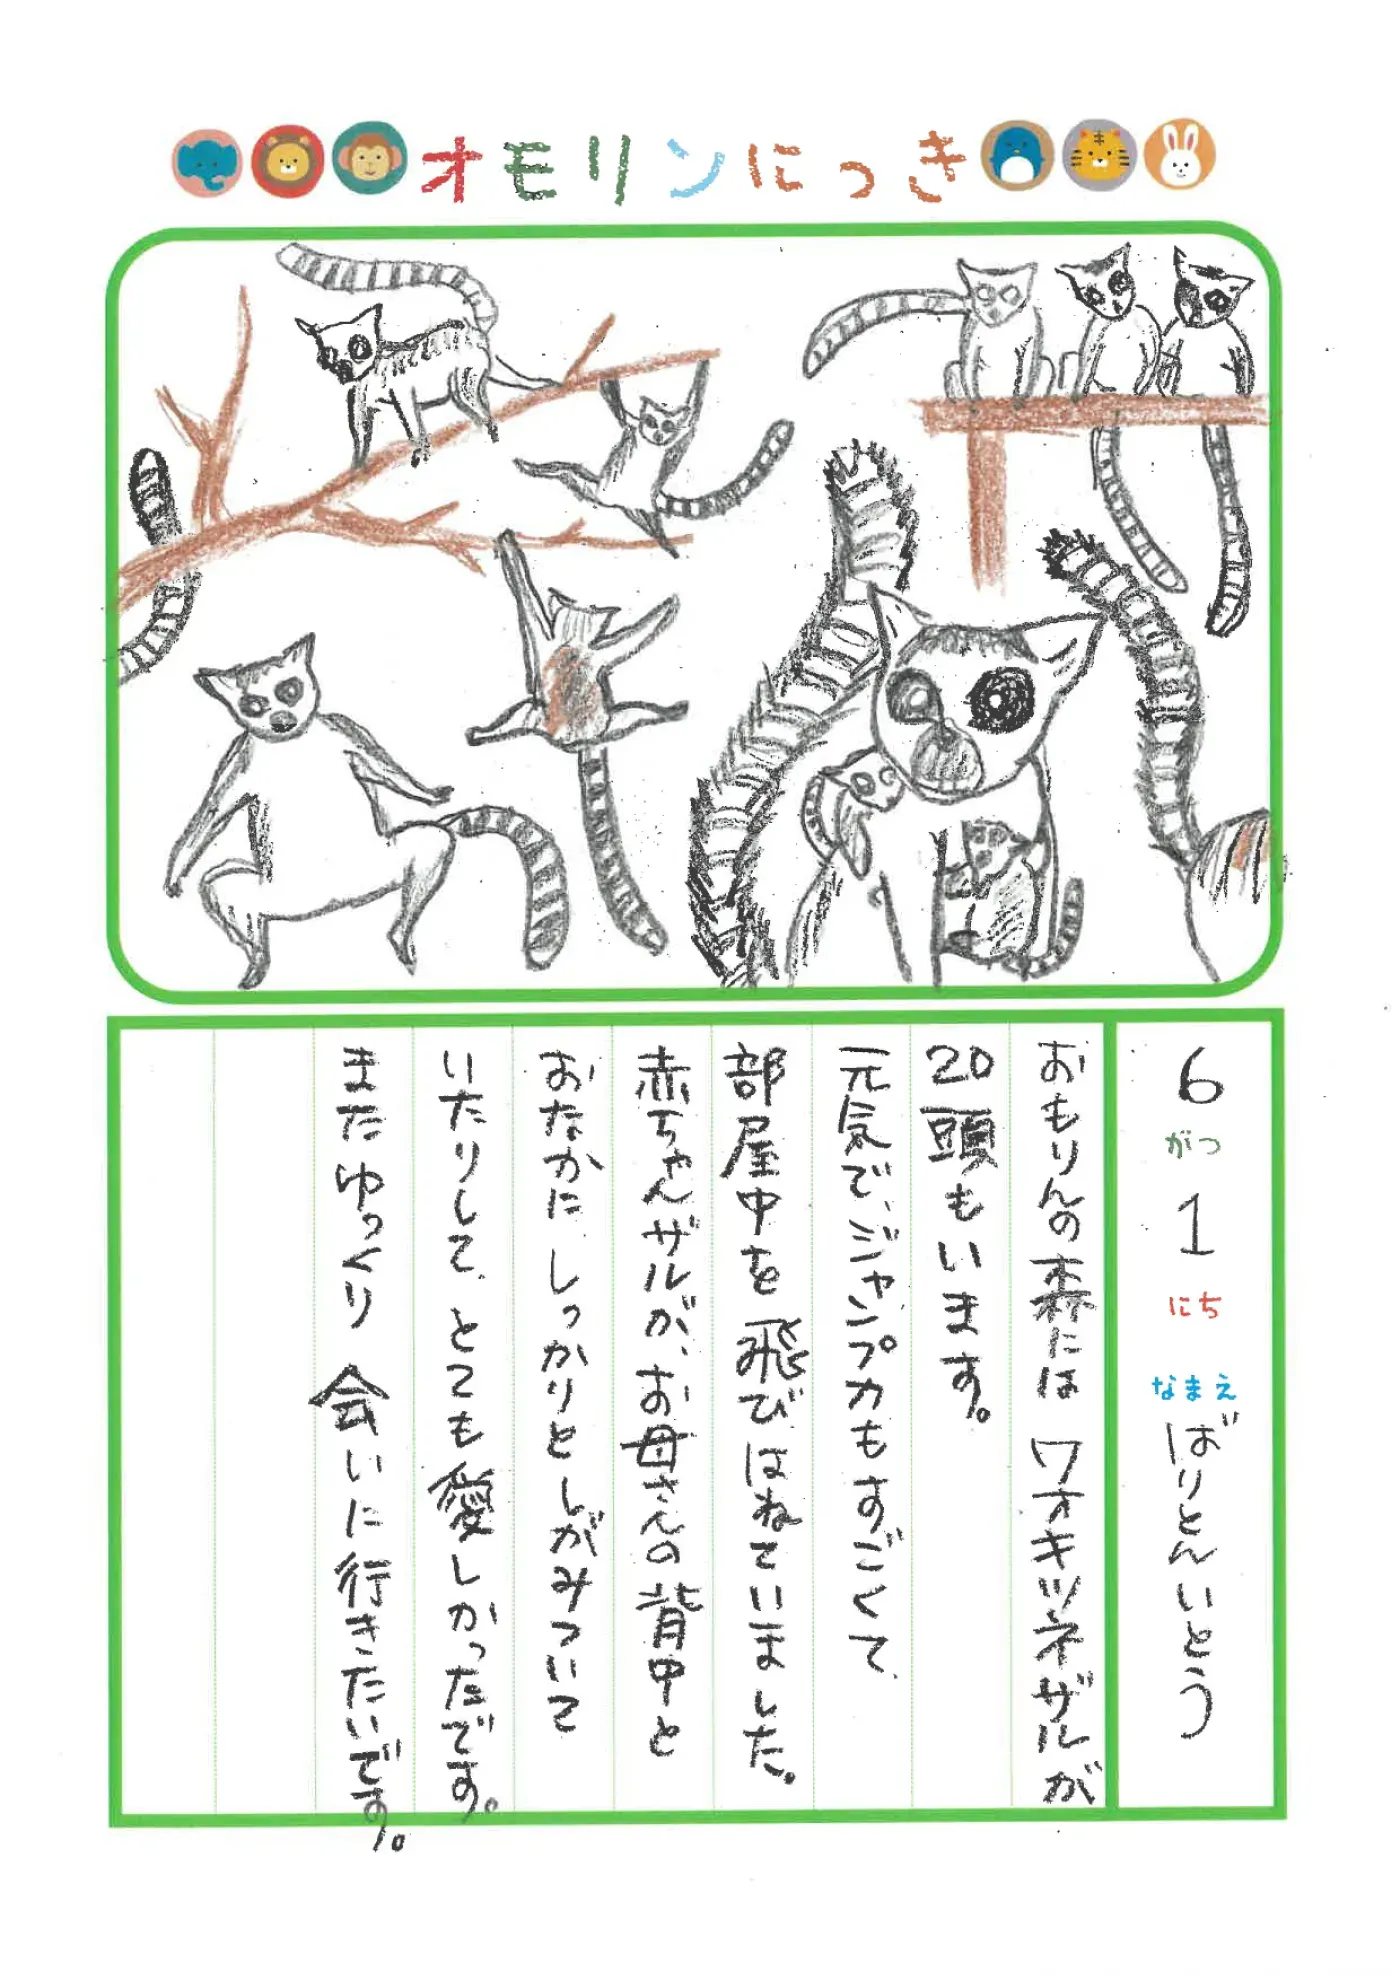 オモリンにっき
6がつ1にち なまえ ばりとんいとう
おもりんの森には ワオキツネザルが
20頭もいます。
元気で、ジャンプ力もすごくて、
部屋中を飛びはねていました。
赤ちゃんザルが、お母さんの背中と
おなかに しっかりとしがみついて
いたりして、とても愛しかったです。
またゆっくり 会いに行きたいです。